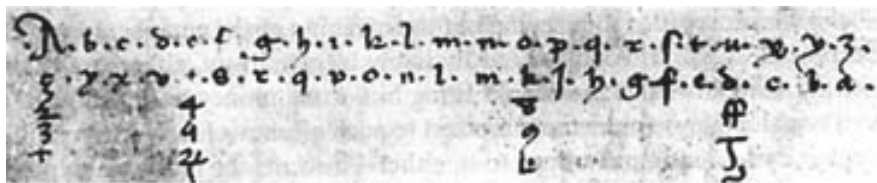 .A.b.c.d.e.f.g.h.i.k.l.m.n.o.p.q.r.ſ.t.u.x.y.z.
z.y.x.v.t.s.r.q.p.o.n.l.m.k.j.h.g.f.e.d.c.b.a.
2 4 8 ff
3 9
+